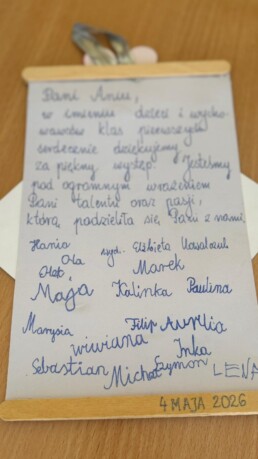 Pani Aniu,
w imieniu dzieci i wycho-
wawców klas pierwszych
serdecznie dziękujemy
za piękny występ. Jesteśmy
pod ogromnym wrażeniem
Pani talentu oraz pasji,
którą podzieliła się Pani z nami.
Hania wych. Elżbieta
Ola Marek
Maja Kalinka Paulina
Marysia Filip Aurelia
wiwiana Inka
Sebastian Michał Szymon LENA
4 MAJA 2026